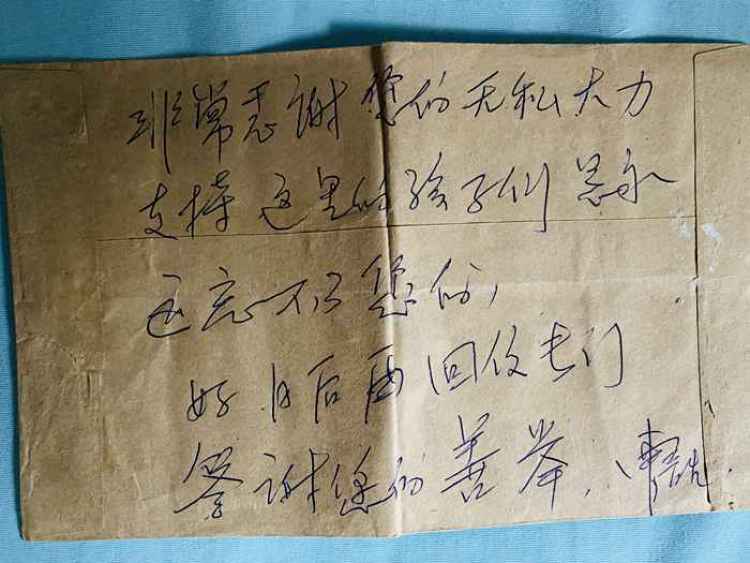 非常感谢您的无私大力
支持这里的孩子们是永
远忘不了您的，
好日后再回仪专门
答谢您的善举，